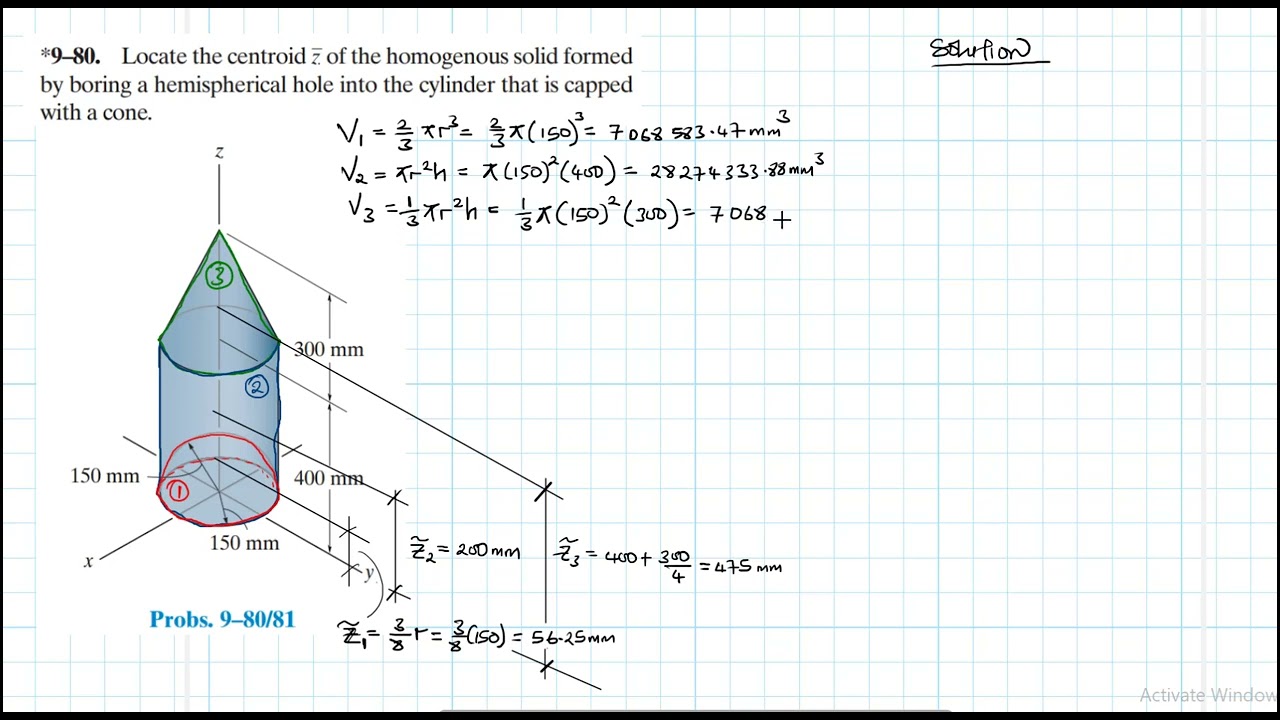 *9–80. Locate the centroid z̄ of the homogenous solid formed
by boring a hemispherical hole into the cylinder that is capped
with a cone.
Solution
V₁ = 2/3 πr³ = 2/3 π(150)³ = 7068583.47mm³
V₂ = πr²h = π(150)²(400) = 28274333.88mm³
V₃ = 1/3 πr²h = 1/3 π(150)²(300) = 7068
z
③
300 mm
②
150 mm
①
400 mm
150 mm
x
y
z̃₂ = 200mm
z̃₃ = 400 + 300/4 = 475 mm
Probs. 9–80/81
z̃₁ = 3/8 r = 3/8 (150) = 56.25mm
Activate Window